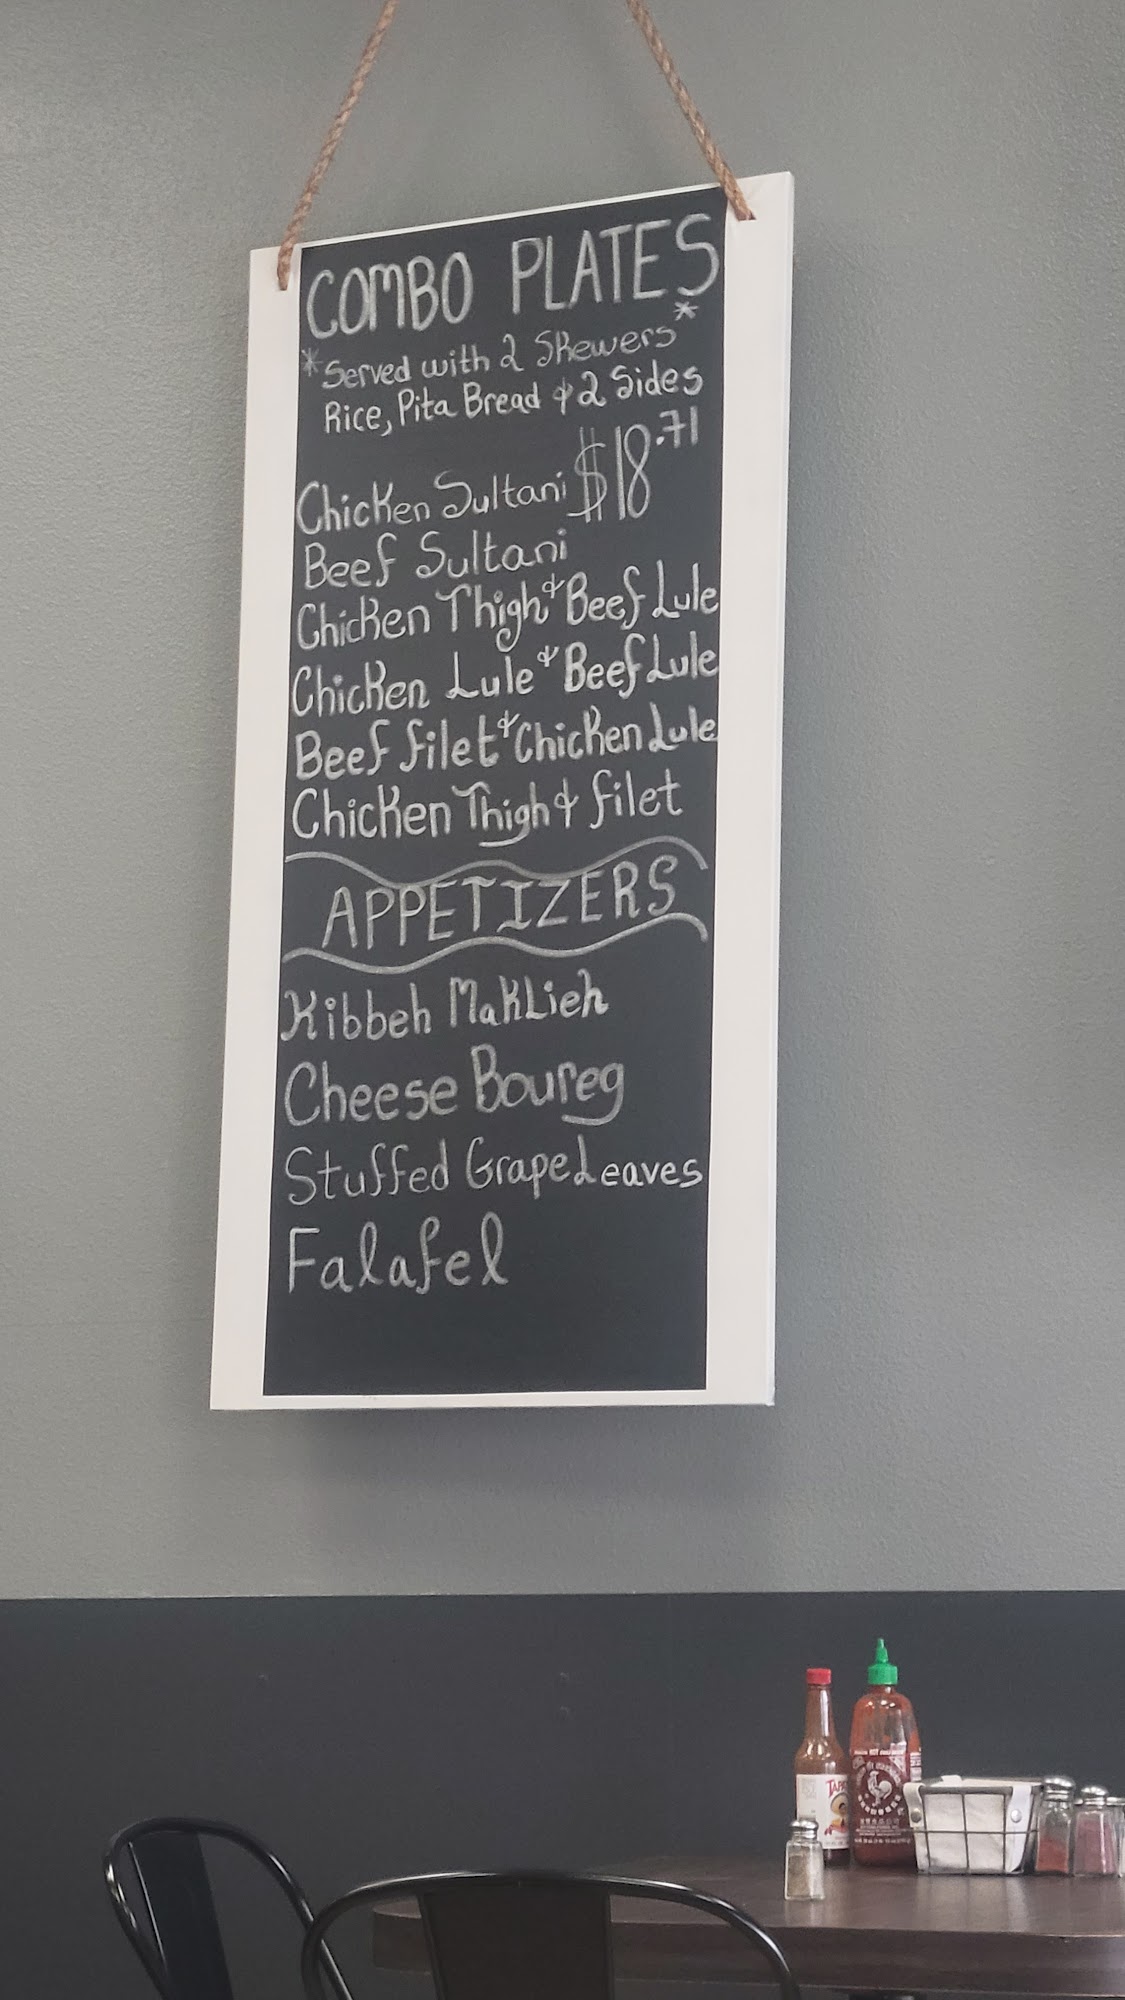 COMBO PLATES
*Served with 2 Skewers*
Rice, Pita Bread & 2 Sides
$18.71
Chicken Sultani
Beef Sultani
Chicken Thigh & Beef Lule
Chicken Lule & Beef Lule
Beef filet & Chicken Lule
Chicken Thigh & filet
APPETIZERS
Kibbeh Maklieh
Cheese Boureg
Stuffed Grape Leaves
Falafel